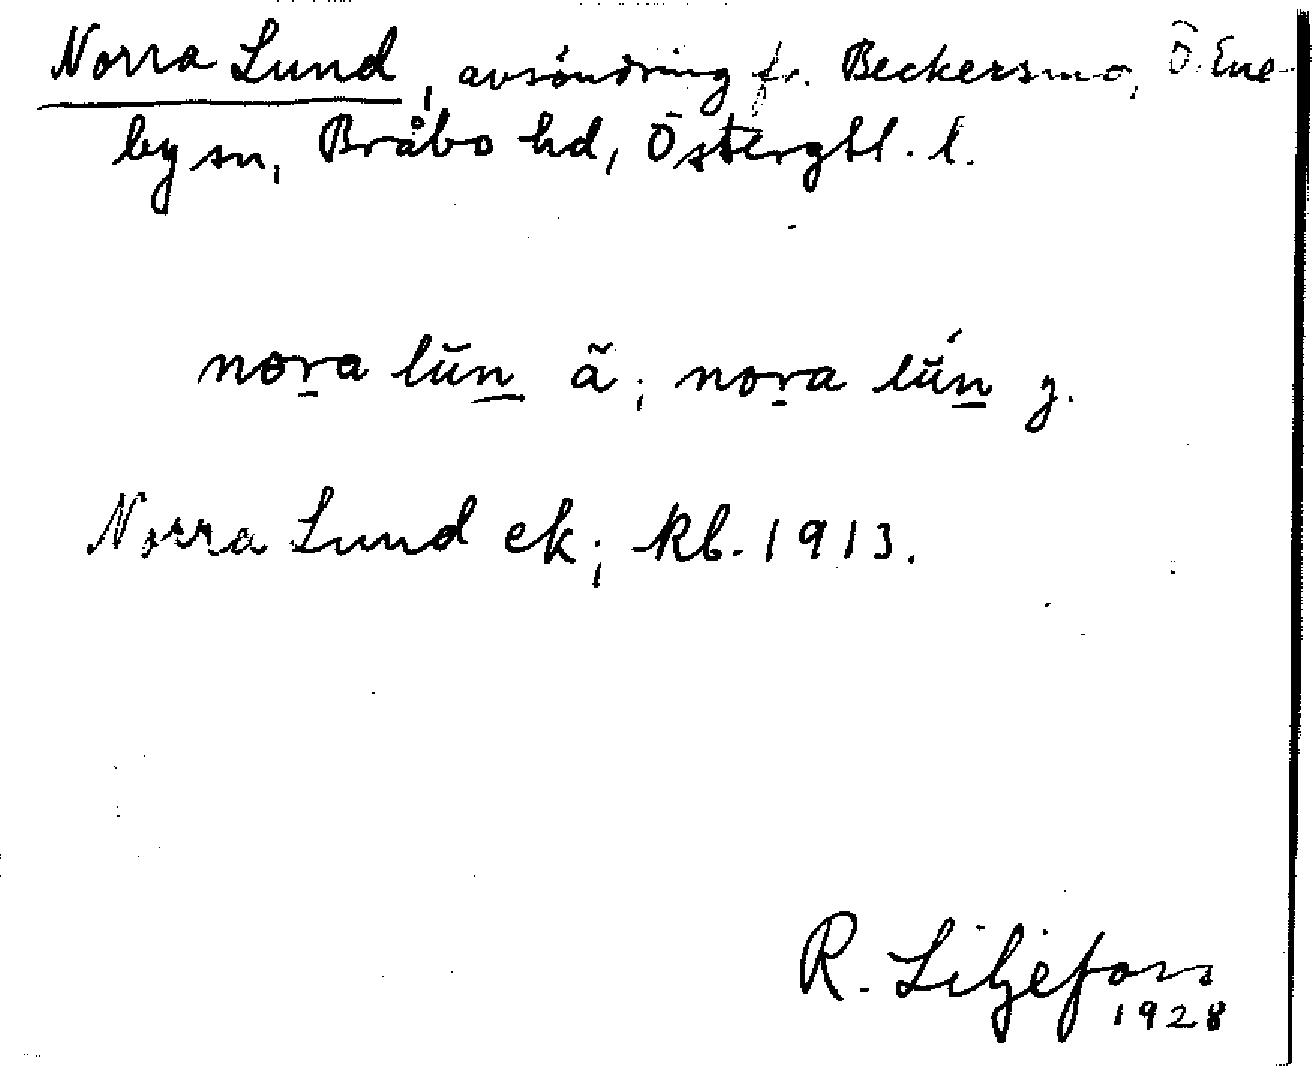 Norra Lund, avsöndring fr. Beckersmo, Ö. Ene-
by sn, Bråbo hd, Östergtl. l.
nor̲a lŭn̲ ã; nor̲a lŭ́n̲ y.
Norra Lund ek; kb. 1913.
R. Liljefors
1928